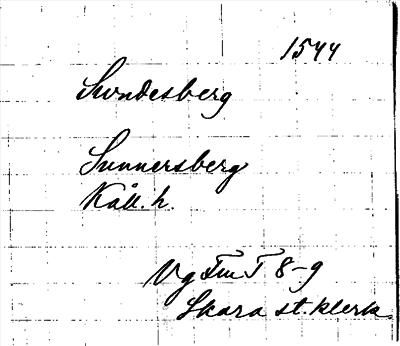 1544
Svndesberg
Sunnersberg
Kåll. h.
Vg Fm T 8-9
Skara st. klerk.